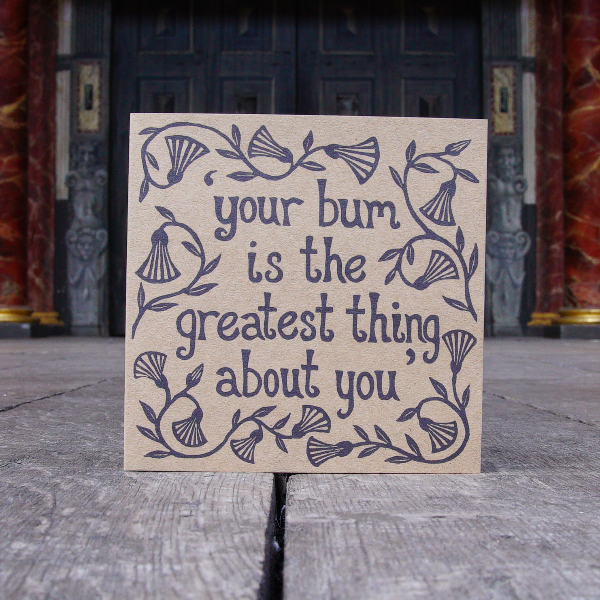 ‘your bum
is the
greatest thing
about you’